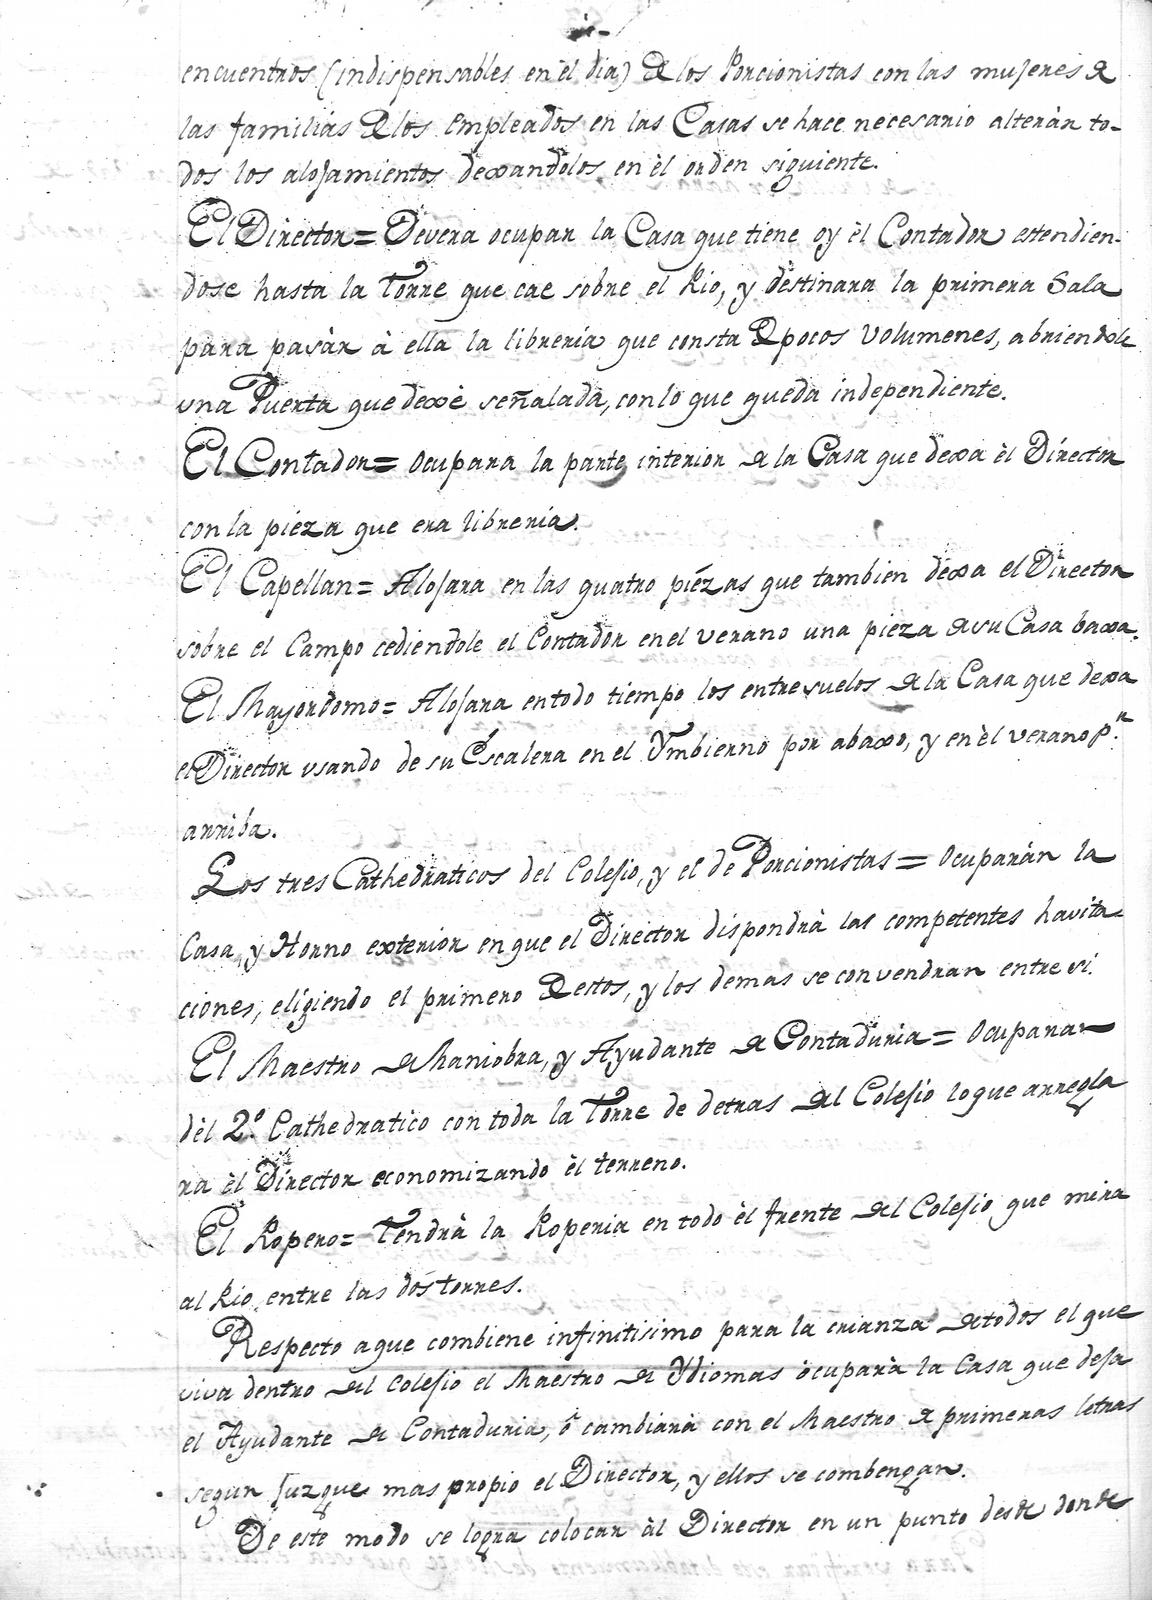 encuentros (indispensables en èl dia) de los Porcionistas con las mujeres de
las familias de los empleados en las Casas se hace necesario alteràr to-
dos los alojamientos dexandolos en èl orden siguiente.
El Director = Devera ocupar la Casa que tiene oy èl Contador estendien-
dose hasta la Torre que cae sobre el Rio, y destinara la primera Sala
para pasàr à ella la libreria que consta de pocos Volumenes, abriendole
una Puerta que dexè señalada, con lo que queda independiente.
El Contador = Ocupara la parte interior de la Casa que dexa èl Director
con la pieza que era libreria.
El Capellan = Alojara en las quatro piezas que tambien dexa el Director
sobre el Campo cediendole el Contador en el verano una pieza de su Casa baxa.
El Mayordomo = Alojara en todo tiempo los entresuelos de la Casa que dexa
el Director usando de su Escalera en el Ymbierno por abaxo, y en èl verano pr.
arriba.
Los tres Cathedraticos del Colejio, y el de Porcionistas = Ocuparàn la
Casa, y Horno exterior en que el Director dispondrà las competentes havita-
ciones, eligiendo el primero de estos, y los demas se convendran entre si.
El Maestro de Maniobra, y Ayudante de Contaduria = Ocuparan
dèl 2º. Cathedratico con toda la Torre de detras del Colejio lo que arregla
ra èl Director economizando èl terreno.
El Ropero = Tendrà la Roperia en todo èl frente del Colejio que mira
al Rio entre las dos torres.
Respecto a que combiene infinitisimo para la crianza de todos el que
viva dentro del Colejio el Maestro de Ydiomas òcuparà la Casa que deja
el Ayudante de Contaduria, ò cambiarà con el Maestro de primeras letras
segun juzgue mas propio el Director, y ellos se combengan.
De este modo se logra colocar àl Director en un punto desde donde